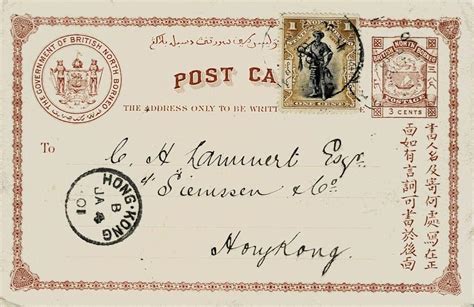 THE GOVERNMENT OF BRITISH NORTH BORNEO
POST CA
THE ADDRESS ONLY TO BE WRIT
1 1
ONE CENT
BRITISH NORTH BORNEO
POSTAGE
3 CENTS
To
C. H. Lammert Esqr.
Siemssen & Co
HongKong
HONG-KONG
B
JA 4
01
書人名及寄何處寫在正
面如有言詞可書於後面